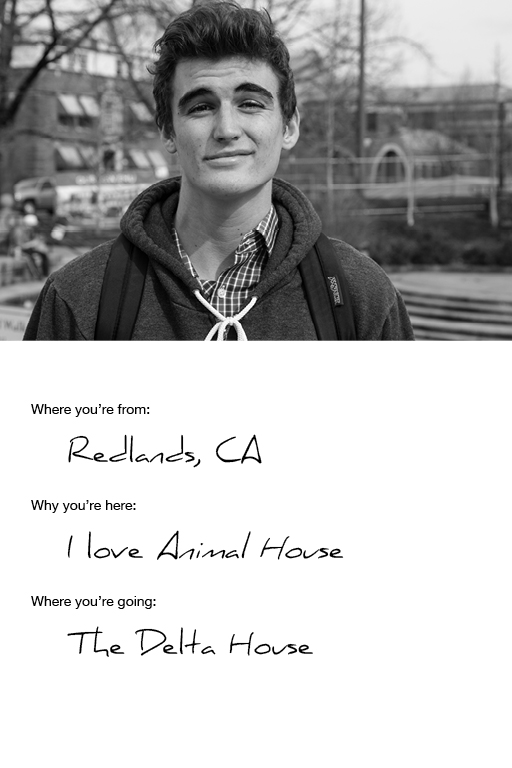 Where you're from:
Redlands, CA
Why you're here:
I love Animal House
Where you're going:
The Delta House